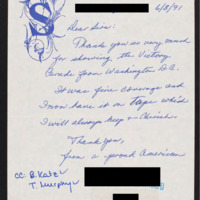 S
6/8/91
Dear Sirs:
Thank you so very much
for showing the Victory
Parade from Washington D.C.
It was fine coverage and
I now have it on tape which
I will always keep & cherish.
Thank you,
from a proud American
CC: B. Kate
T. Murphy